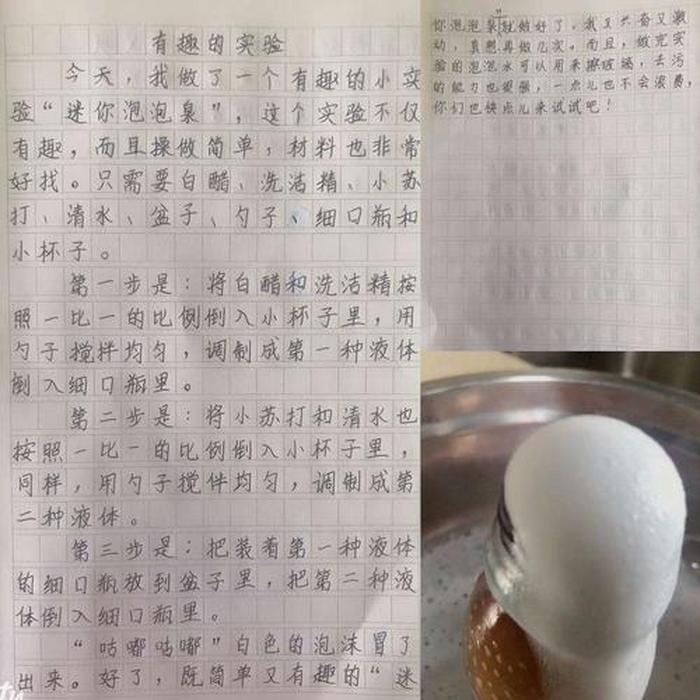 有趣的实验
今天，我做了一个有趣的小实
验“迷你泡泡泉”，这个实验不仅
有趣，而且操做简单，材料也非常
好找。只需要白醋、洗洁精、小苏
打、清水、盆子、勺子、细口瓶和
小杯子。
第一步是：将白醋和洗洁精按
照一比一的比例倒入小杯子里，用
勺子搅拌均匀，调制成第一种液体
倒入细口瓶里。
第二步是：将小苏打和清水也
按照一比一的比例倒入小杯子里，
同样，用勺子搅伴均匀，调制成第
二种液体。
第三步是：把装着第一种液体
的细口瓶放到盆子里，把第二种液
体倒入细口瓶里。
“咕嘟咕嘟”白色的泡沫冒了
出来。好了，既简单又有趣的“迷
你泡泡泉”就做好了，我又兴奋又激
动，真想再做几次。而且，做完实
验的泡泡水可以用来擦玻璃，去污
的能力也很强，一点儿也不会浪费，
你们也快点儿来试试吧！